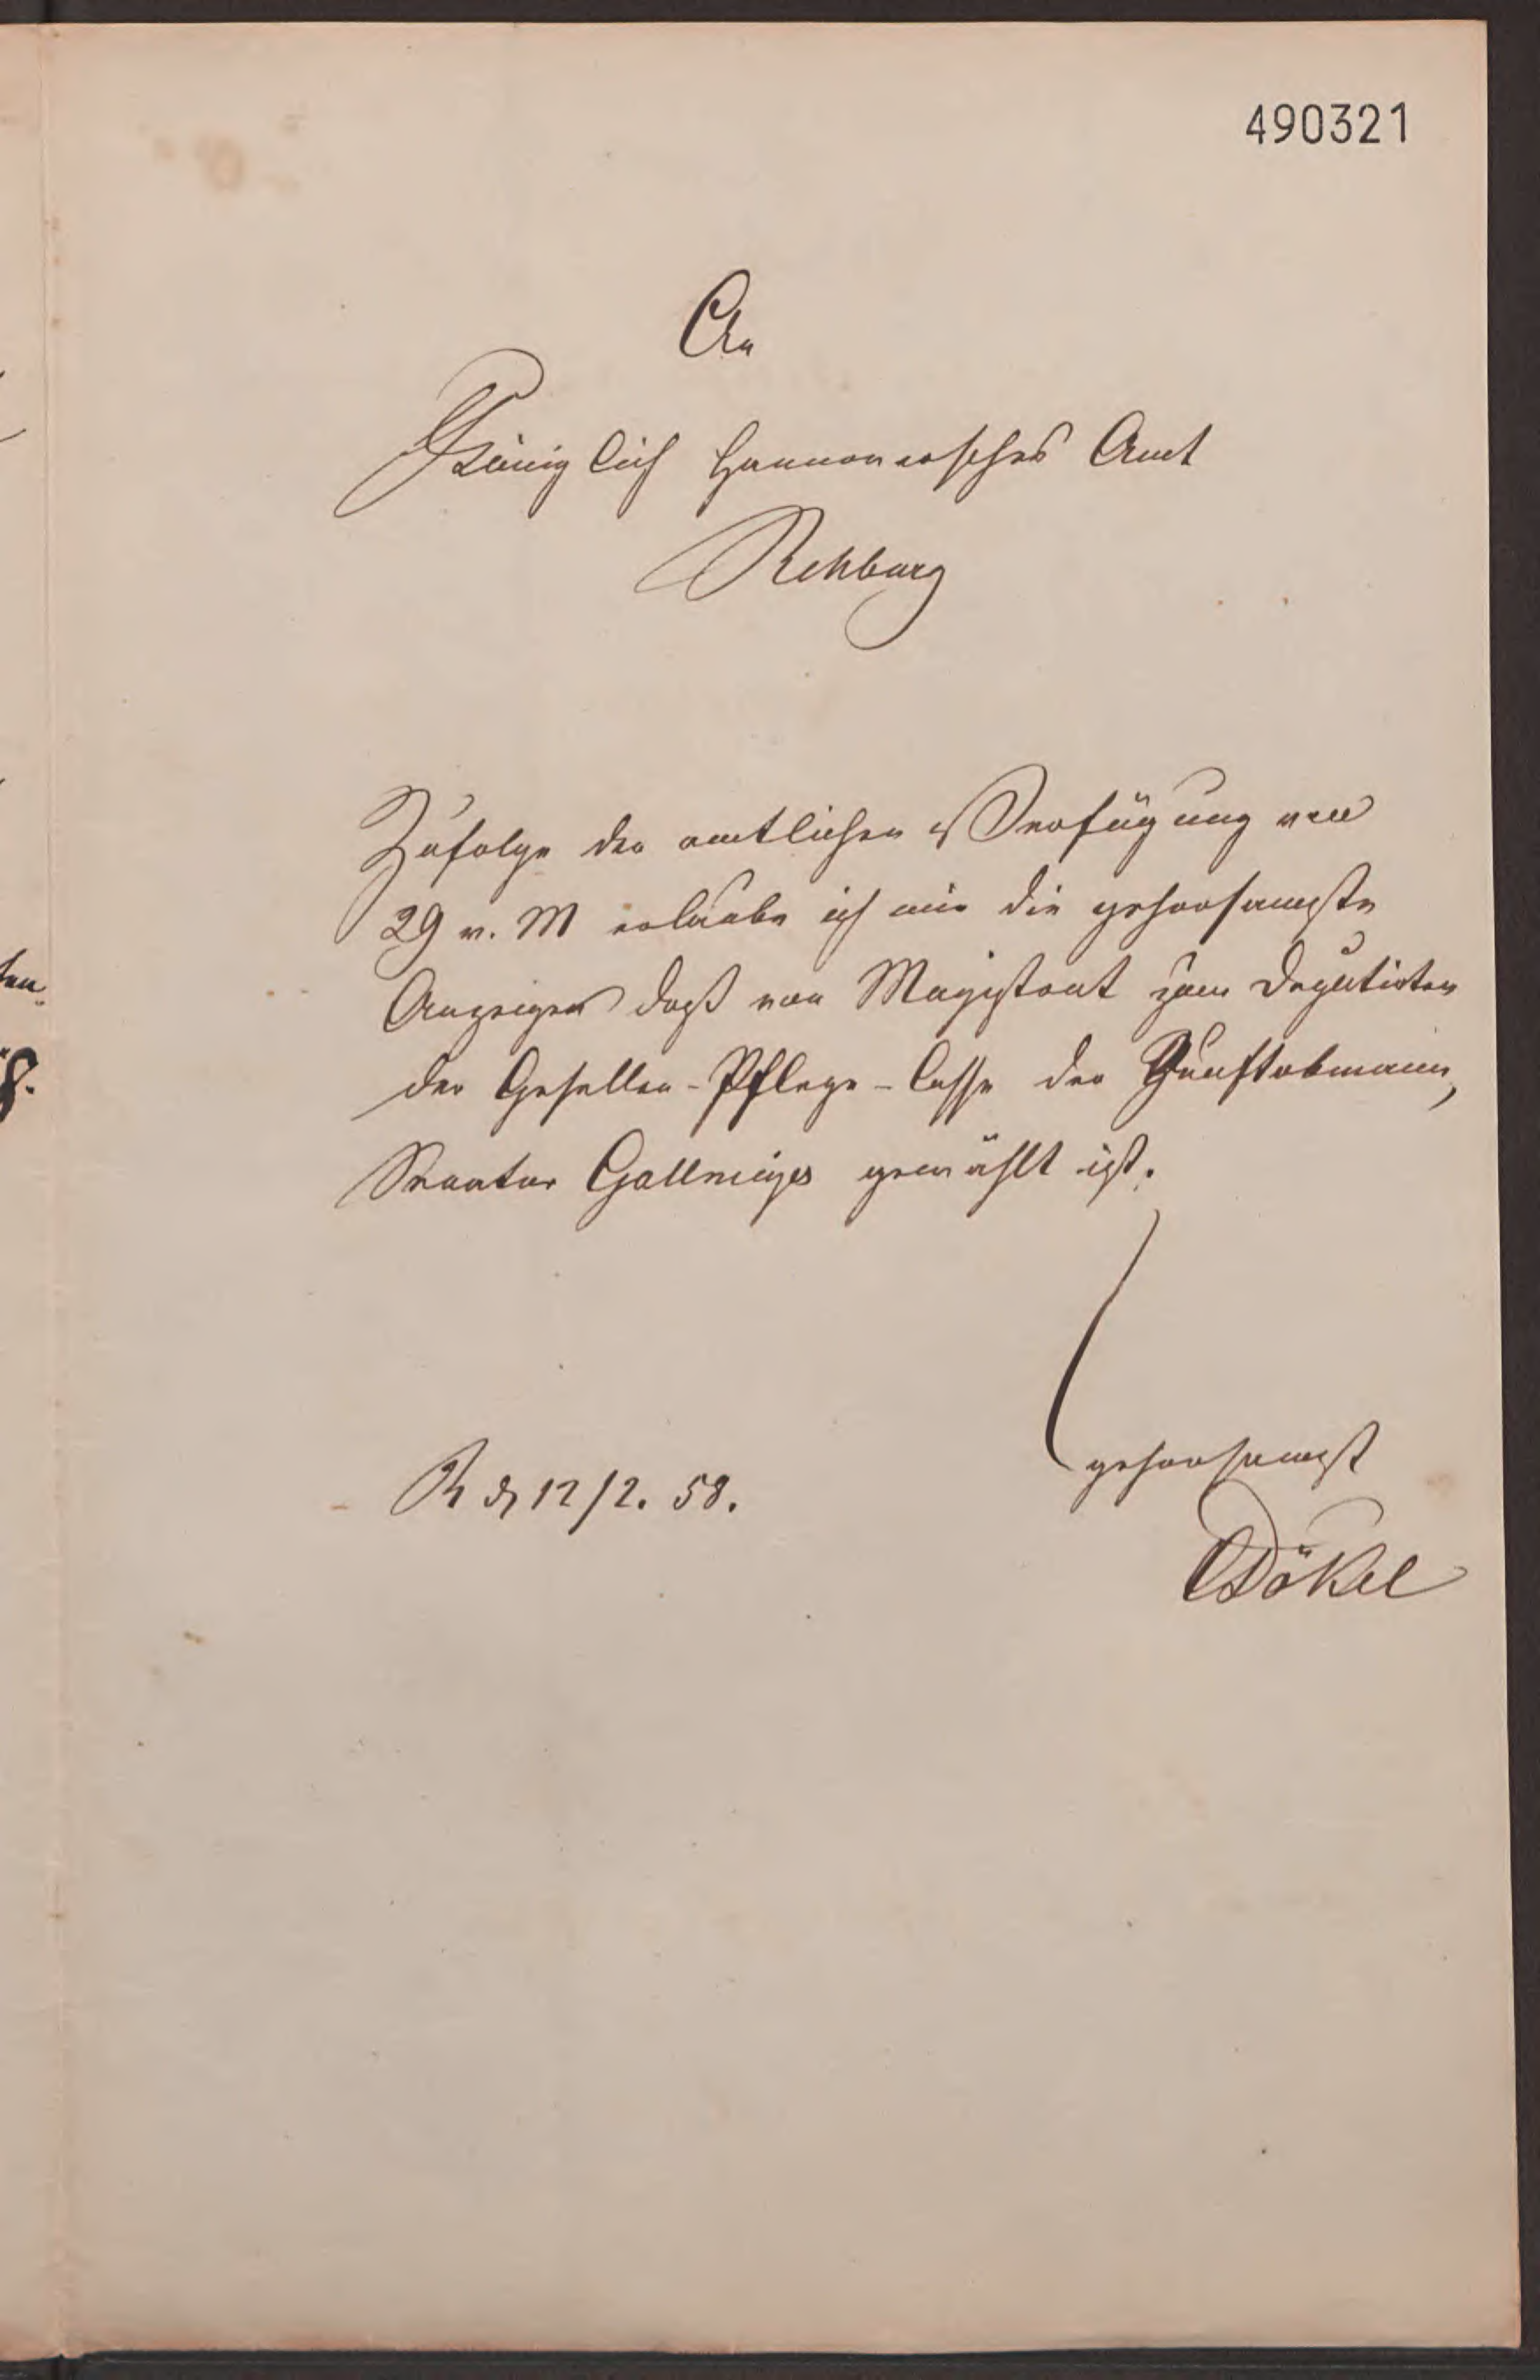 490321
An
Königlich Hannoversches Amt
Rehburg
Zufolge der amtlichen Verfügung vom
29 v. M erlaube ich mir die gehorsamste
Anzeige daß vom Magistrat zum Deputirten
der Gesellen-Pflege-Casse der Zunftobmann,
Senator Gallmeyer gewählt ist.
gehorsamst
R d 12/2. 58.
Dökel